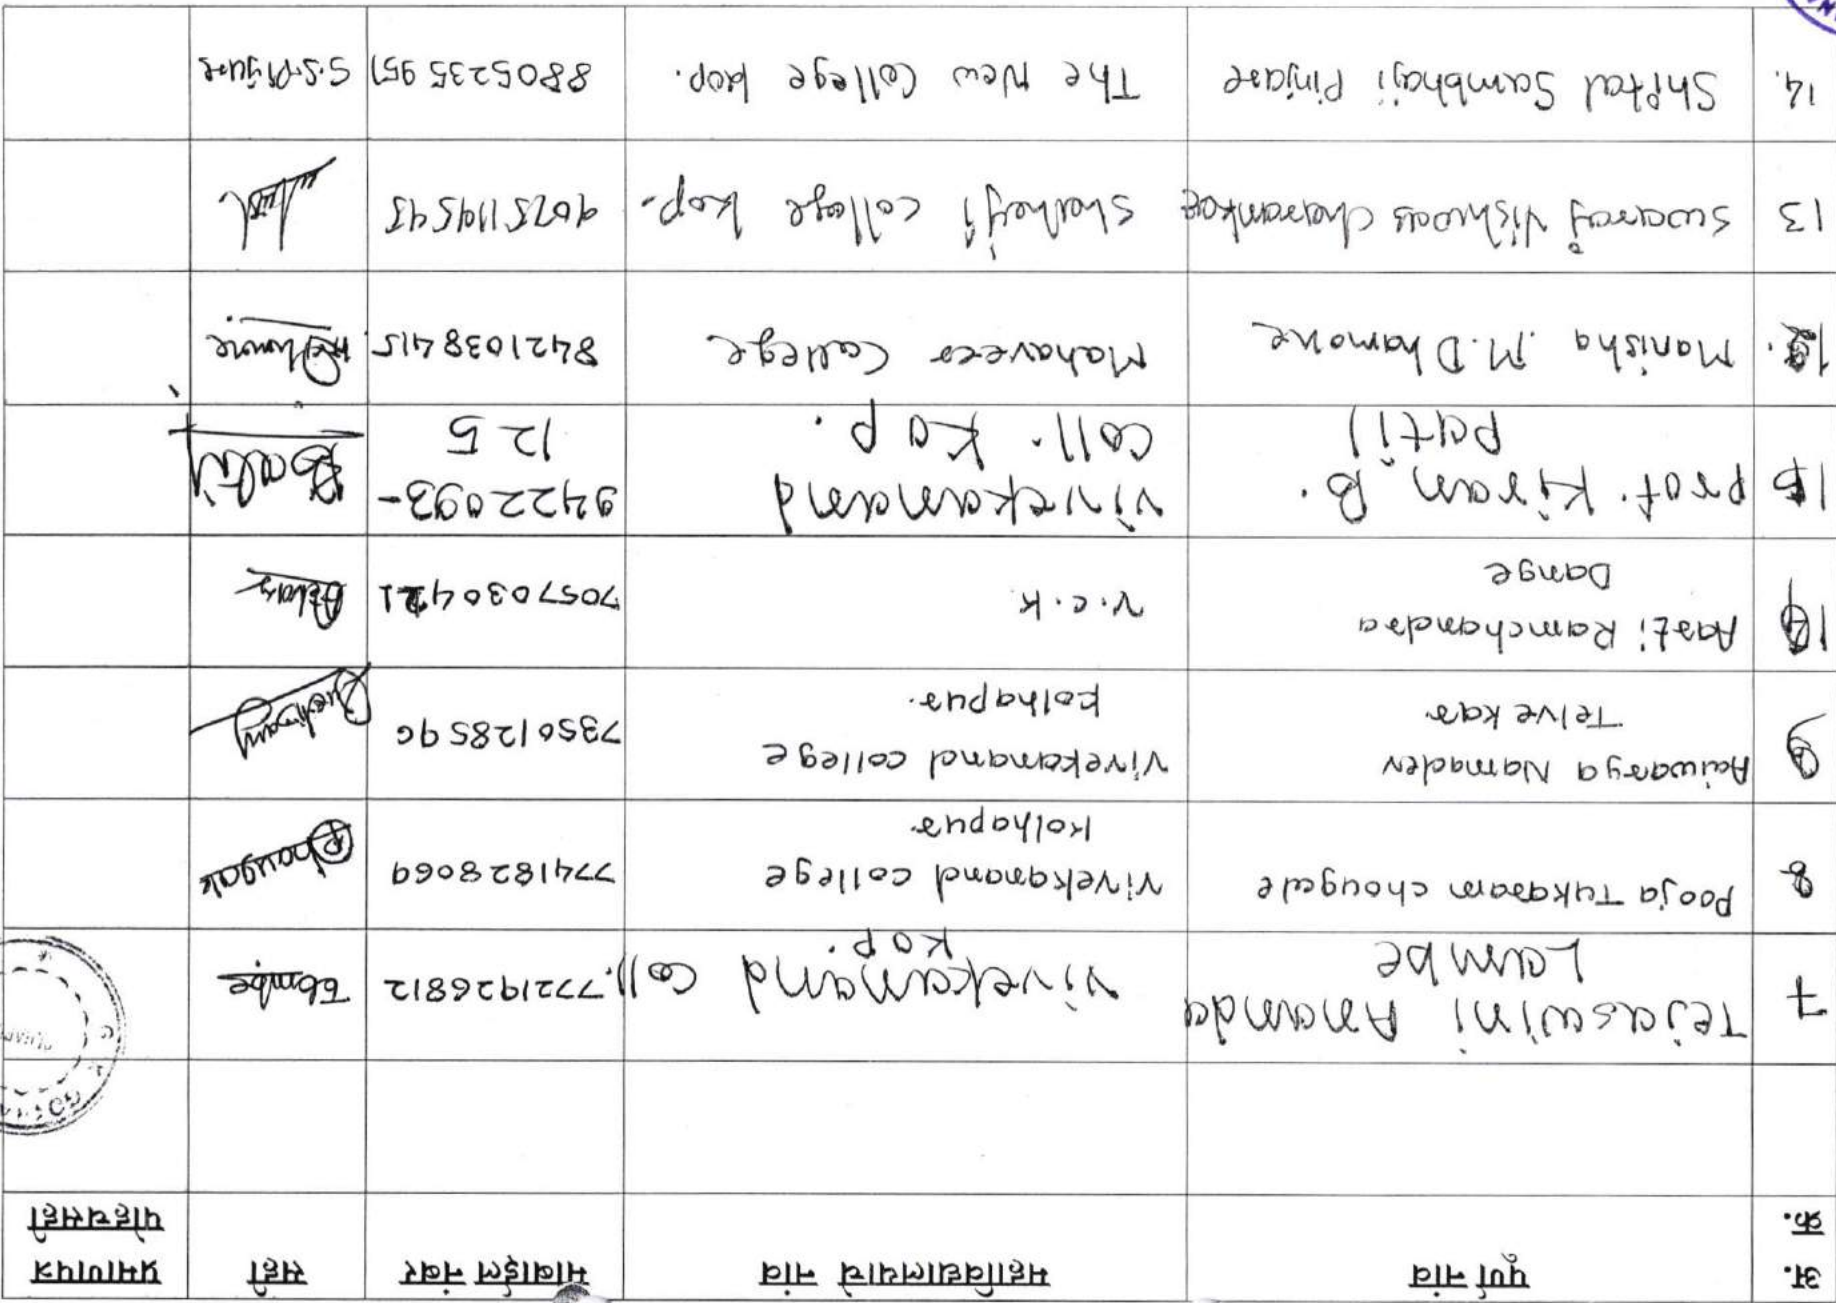 अ.
क्र.
पूर्ण नांव
महाविद्यालयाचे नांव
मोबाईल नंबर
सही
प्रमाणपत्र
पोहचसही
7
Tejaswini Ananda
Lambe
Vivekanand Coll.
Kop.
7721926812
8
Pooja Tukaram chougule
Vivekanand college
Kolhapur
7741828069
9
Aaiwarya Namadev
Telvekar
Vivekanand college
Kolhapur.
7350128596
10
Aarti Ramchandra
Dange
V.C.K
11
Prof. Kiran B.
Patil
Vivekanand
Coll. Kop.
9422093-
125
Patil
12.
Manisha M. Dhamone
Mahaveer College
8421038415
13
Swaraj Vishwas
Shahaji College Kop.
14.
Shital Sambhaji Pinjare
The New College Kop.
8805235951
S.S.Pinjare